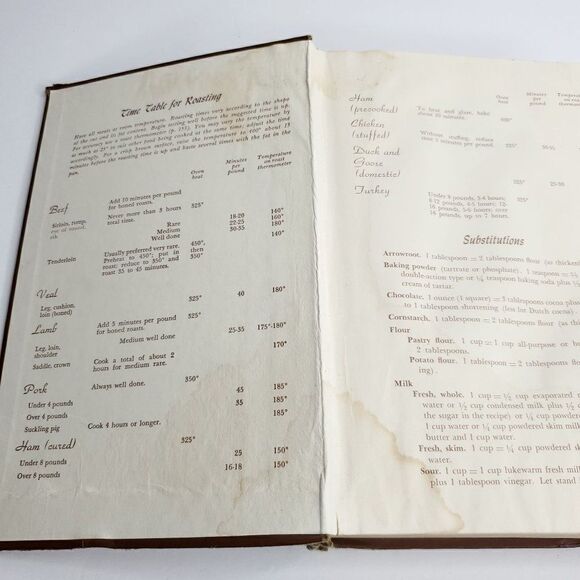 Time Table for Roasting
Have all meats at room temperature. Roasting times vary according to the shape
of the cut and its fat content. Begin testing well before the suggested time is up;
for accuracy use a meat thermometer (p. 155). You may vary the temperature by
as much as 25° to suit other food being cooked at the same time; adjust the time
accordingly. For a crisp brown surface, raise the temperature to 400° about 15
minutes before the roasting time is up and baste several times with the fat in the
pan.
Oven heat Minutes per pound Temperature on roast thermometer
Beef Add 10 minutes per pound
for boned roasts.
Sirloin, rump, Never more than 3 hours 325°
eye of round, total time. Rare 18-20 140°
rib Medium 22-25 160°
Well done 30-35 180°
Tenderloin Usually preferred very rare. 450°, 140°
Preheat to 450°; put in then
roast; reduce to 350° and 350°
roast 35 to 45 minutes.
Veal
Leg, cushion, 325° 40 180°
loin (boned)
Lamb Add 5 minutes per pound 325°
for boned roasts.
Leg, loin, Medium well done 25-35 175°-180°
shoulder
Saddle, crown Cook a total of about 2 170°
hours for medium rare.
Pork Always well done. 350°
Under 4 pounds 45 185°
Over 4 pounds 35 185°
Suckling pig Cook 4 hours or longer. 185°
Ham (cured) 325°
Under 8 pounds 25 150°
Over 8 pounds 16-18 150°
Oven heat Minutes per pound
Ham To heat and glaze, bake
(precooked) about 30 minutes. 400°
Chicken
(stuffed) Without stuffing, reduce 325°
time 5 minutes per pound. 30-35
Duck and
Goose 325°
(domestic) 25-30
Turkey Under 8 pounds, 3-4 hours; 325°
8-12 pounds, 4-5 hours; 12-
16 pounds, 5-6 hours; over
16 pounds, up to 7 hours.
Substitutions
Arrowroot. 1 tablespoon = 2 tablespoons flour (as thicken
Baking powder (tartrate or phosphate). 1 teaspoon = ⅔
double-action type or ¼ teaspoon baking soda plus ½
cream of tartar.
Chocolate. 1 ounce (1 square) = 3 tablespoons cocoa plus
to 1 tablespoon shortening (less for Dutch cocoa)
Cornstarch. 1 tablespoon = 2 tablespoons flour (as thi
Flour
Pastry flour. 1 cup = 1 cup all-purpose or br
2 tablespoons.
Potato flour. 1 tablespoon = 2 tablespoons flour (
ing)
Milk
Fresh, whole. 1 cup = ½ cup evaporated m
water or ½ cup condensed milk plus ½
the sugar in the recipe) or ¼ cup powde
1 cup water or ¼ cup powdered skim m
butter and 1 cup water.
Fresh, skim. 1 cup = ¼ cup powdered sk
water.
Sour. 1 cup = 1 cup lukewarm fresh mil
plus 1 tablespoon vinegar. Let stand